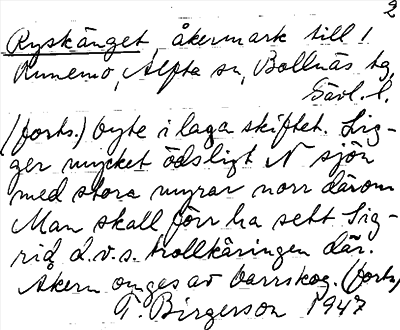 2
Ryskänget, åkermark till 1
Runemo, Alfta sn, Bollnäs tg,
Gävl. l.
(forts.) byte i laga skiftet. Lig-
ger mycket ödsligt N sjön
med stora myrar norr därom
Man skall förr ha sett Sig-
rid, d.v.s. trollkäringen där.
Åkern omges av barrskog. (forts)
T. Birgerson 1947